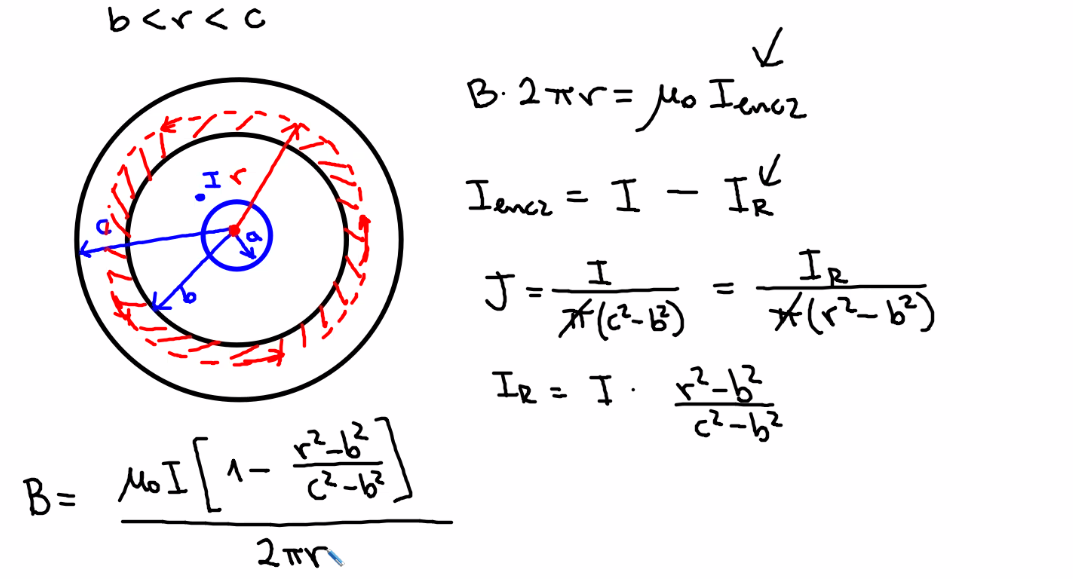 b < r < c
B · 2πr = μ₀ I_enc2
I_enc2 = I − I_R
J = I / π(c² − b²) = I_R / π(r² − b²)
I_R = I · (r² − b²) / (c² − b²)
I r
c a
b
B = μ₀I [1 − (r² − b²) / (c² − b²)] / 2πr